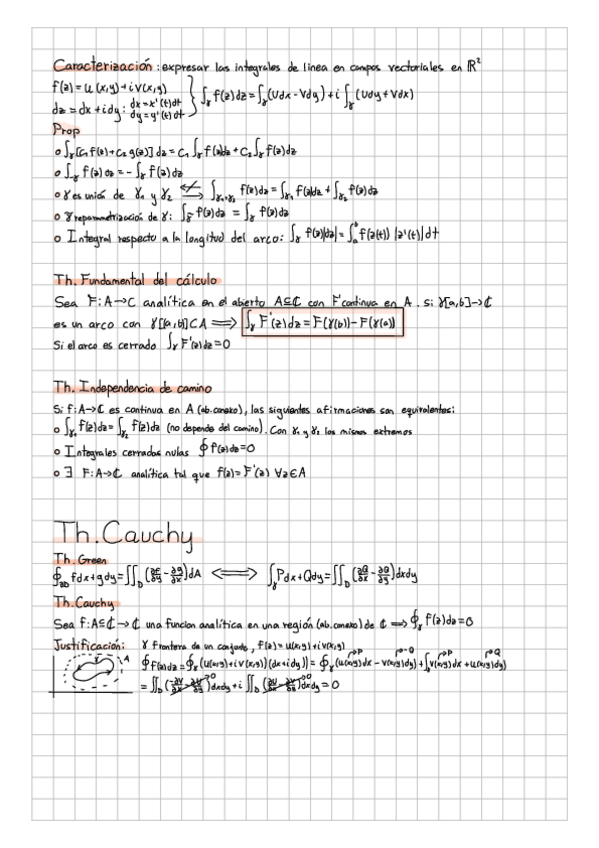 Caracterización: expresar las integrales de linea en campos vectoriales en ℝ²
f(z)=u(x,y)+iv(x,y)
dz=dx+idy: dx=x'(t)dt dy=y'(t)dt } ∫_γ f(z)dz=∫_γ(Udx-Vdy)+i∫_γ(Udy+Vdx)
Prop
∘ ∫_γ[C₁f(z)+C₂g(z)]dz=C₁∫_γ f(z)dz+C₂∫_γ f(z)dz
∘ ∫_-γ f(z)dz=-∫_γ f(z)dz
∘ γ es unión de γ₁ y γ₂ ⇍ ⟹ ∫_γ₁+γ₂ f(z)dz=∫_γ₁ f(z)dz+∫_γ₂ f(z)dz
∘ γ̃ reparametrización de γ: ∫_γ̃ f(z)dz=∫_γ f(z)dz
∘ Integral respecto a la longitud del arco: ∫_γ f(z)|dz|=∫_a^b f(z(t)) |z'(t)|dt
Th. Fundamental del cálculo
Sea F:A→C analítica en el abierto A⊆ℂ con F' continua en A. si γ[a,b]→ℂ
es un arco con γ[[a,b]]CA ⟹ ∫_γ F'(z)dz=F(γ(b))-F(γ(a))
Si el arco es cerrado ∫_γ F'(z)dz=0
Th. Independencia de camino
Si f:A→ℂ es continua en A (ab.conexo), las siguientes afirmaciones son equivalentes:
∘ ∫_γ₁ f(z)dz=∫_γ₂ f(z)dz (no depende del camino). Con γ₁ y γ₂ los mismos extremos
∘ Integrales cerradas nulas ∮f(z)dz=0
∘ ∃ F:A→ℂ analítica tal que f(z)=F'(z) ∀z∈A
Th.Cauchy
Th. Green
∮_∂D fdx+gdy=∬_D(∂f/∂y-∂g/∂x)dA ⟺ ∫_γ Pdx+Qdy=∬_D(∂Q/∂x-∂Q/∂y)dxdy
Th.Cauchy
Sea f:A⊆ℂ→ℂ una funcion analítica en una región (ab.conexo) de ℂ ⟹ ∮_γ f(z)dz=0
Justificación: γ frontera de un conjunto, f(z)=u(x,y)+iv(x,y)
A γ ∮f(z)dz=∮_γ(u(x,y)+iv(x,y))(dx+idy)=∮_γ(u(x,y)dx-v(x,y)dy)+∫_γ v(x,y)dx+u(x,y)dy
→P →-Q →P →Q
=∬_D(-∂V/∂x-∂U/∂y)→0 dxdy+i∬_D(∂U/∂x-∂V/∂y)→0 dxdy=0